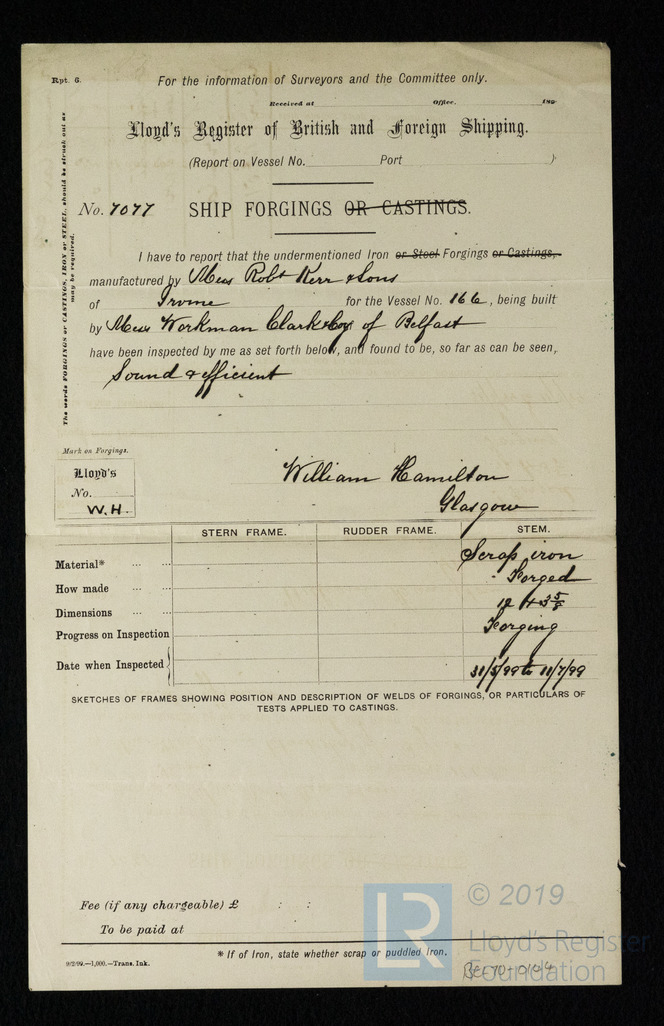 Rpt. 6.
For the information of Surveyors and the Committee only.
Received at Office. 189
Lloyd's Register of British and Foreign Shipping.
(Report on Vessel No. Port )
No. 7077 SHIP FORGINGS OR CASTINGS.
The words FORGINGS or CASTINGS, IRON or STEEL, should be struck out as
may be required.
I have to report that the undermentioned Iron or Steel Forgings or Castings,
manufactured by Mess Robt Kerr & Sons
of Irvine for the Vessel No. 166, being built
by Mess Workman Clark & Coy of Belfast
have been inspected by me as set forth below, and found to be, so far as can be seen,
Sound & efficient
Mark on Forgings.
Lloyd's
No.
W.H.
William Hamilton
Glasgow
STERN FRAME. RUDDER FRAME. STEM.
Material* Scrap iron
How made Forged
Dimensions 12
Progress on Inspection Forging
Date when Inspected 31/5/99 to 11/7/99
SKETCHES OF FRAMES SHOWING POSITION AND DESCRIPTION OF WELDS OF FORGINGS, OR PARTICULARS OF
TESTS APPLIED TO CASTINGS.
Fee (if any chargeable) £ : :
To be paid at
* If of Iron, state whether scrap or puddled Iron.
9/2/99.—1,000.—Trans. Ink.
LR
© 2019
Lloyd's Register
Foundation